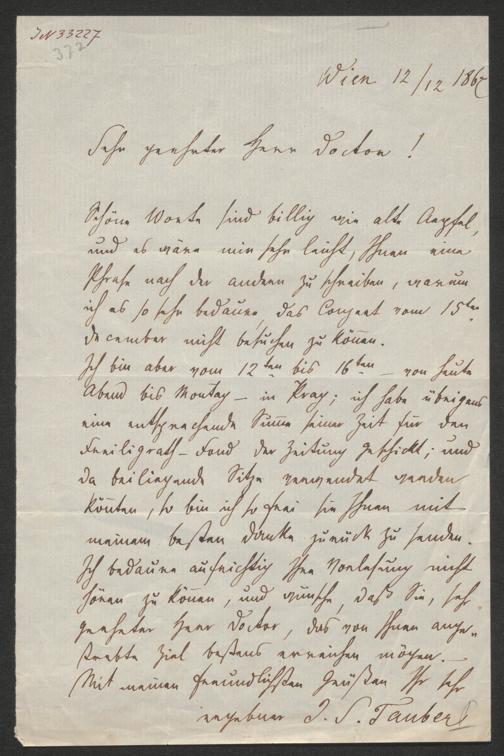 IN 33227
372
Wien 12/12 1867
Sehr geehrter Herr Doctor!
Schöne Worte sind billig wie alte Aepfel,
und es wäre mir sehr leicht, Ihnen eine
Phrase nach der andern zu schreiben, warum
ich es so sehr bedaure, das Concert vom 15ten
december nicht besuchen zu können.
Ich bin aber vom 12ten bis 16ten – von heute
Abend bis Montag – in Prag; ich habe übrigens
eine entsprechende Summe seiner Zeit für den
Freiligrath-Fond der Zeitung geschickt; und
da beiliegende Sitze verwendet werden
könnten, so bin ich so frei sie Ihnen mit
meinem besten Danke zurück zu senden.
Ich bedaure aufrichtig Ihre Vorlesung nicht
hören zu können, und wünsche, daß Sie, sehr
geehrter Herr Doctor, das von Ihnen ange-
strebte Ziel bestens erreichen mögen. –
Mit meinen freundlichsten Grüßen Ihr sehr
ergebner J. S. Tauber